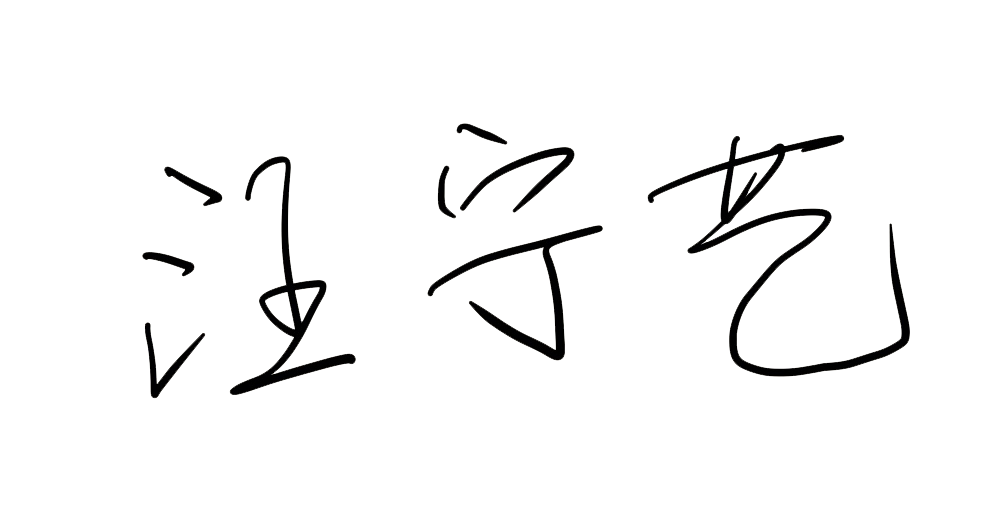 汪宁艺